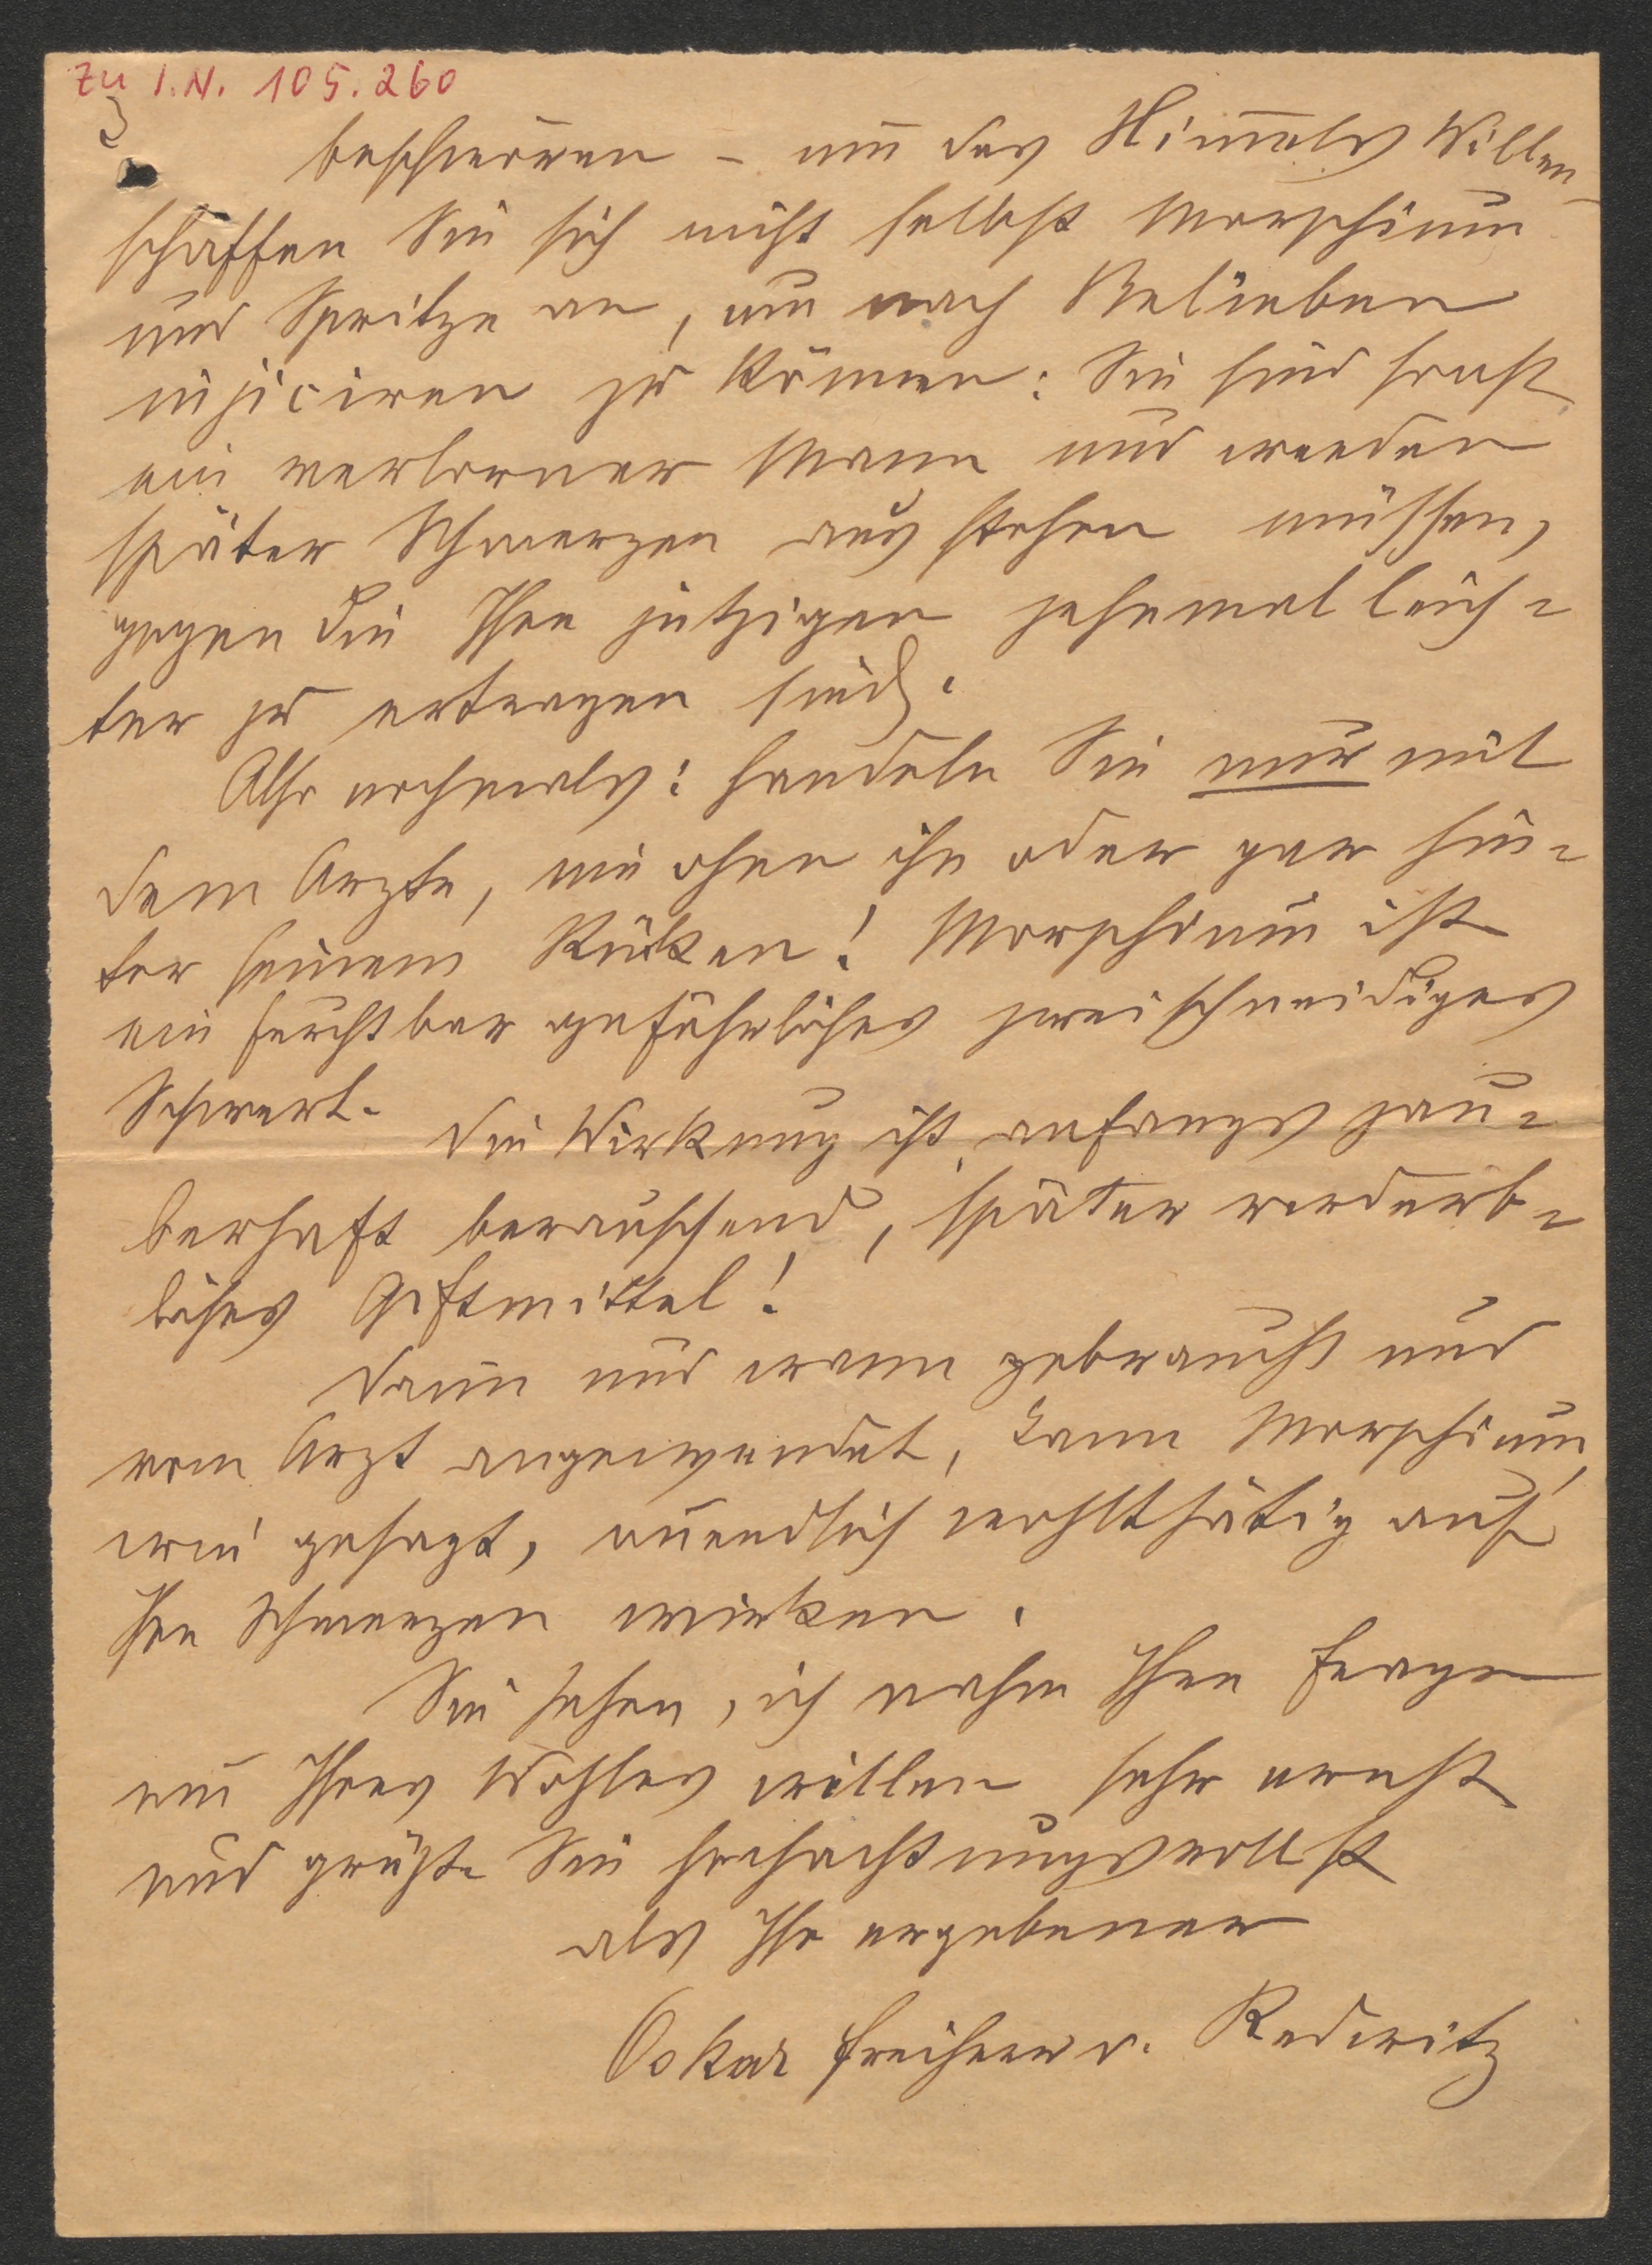 Zu I.N. 105.260
3
beschwören – um des Himmels Willen
schaffen Sie sich nicht selbst Morphium
und Spritze an, um nach Belieben
injiciren zu können: Sie sind sonst
ein verlorner Mann und werden
später Schmerzen ausstehen müssen,
gegen die Ihre jetzigen zehnmal leich=
ter zu ertragen sind.
Also nochmals: handeln Sie nur mit
dem Arzte, nie ohne ihn oder gar hin=
ter seinem Rücken! Morphium ist
ein furchtbar gefährliches zweischneidiges
Schwert. Die Wirkung ist anfangs zau=
berhaft berauschend, später verderb=
liches Giftmittel!
Dann und wann gebraucht und
vom Arzt angewendet, kann Morphium,
wie gesagt, unendlich wohlthätig auf
Ihre Schmerzen wirken.
Sie sehen, ich nahm Ihre Frage
um Ihres Wohles willen sehr ernst
und grüße Sie hochachtungsvollst
als Ihr ergebener
Oskar Freiherr v. Redwitz